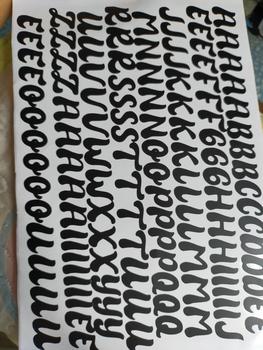 AAAABBBCCCDDDE
EEEEFFFGGGHHHIIIJ
JJJJKKKKLLLLMMM
MNNNNOOPPPPPQQ
RRRRSSSSTTTTUUU
UUUVVVWWXXXYYY
ZZZZAAAAAIIIIIEE
EEEEOOOOOOUUUUU